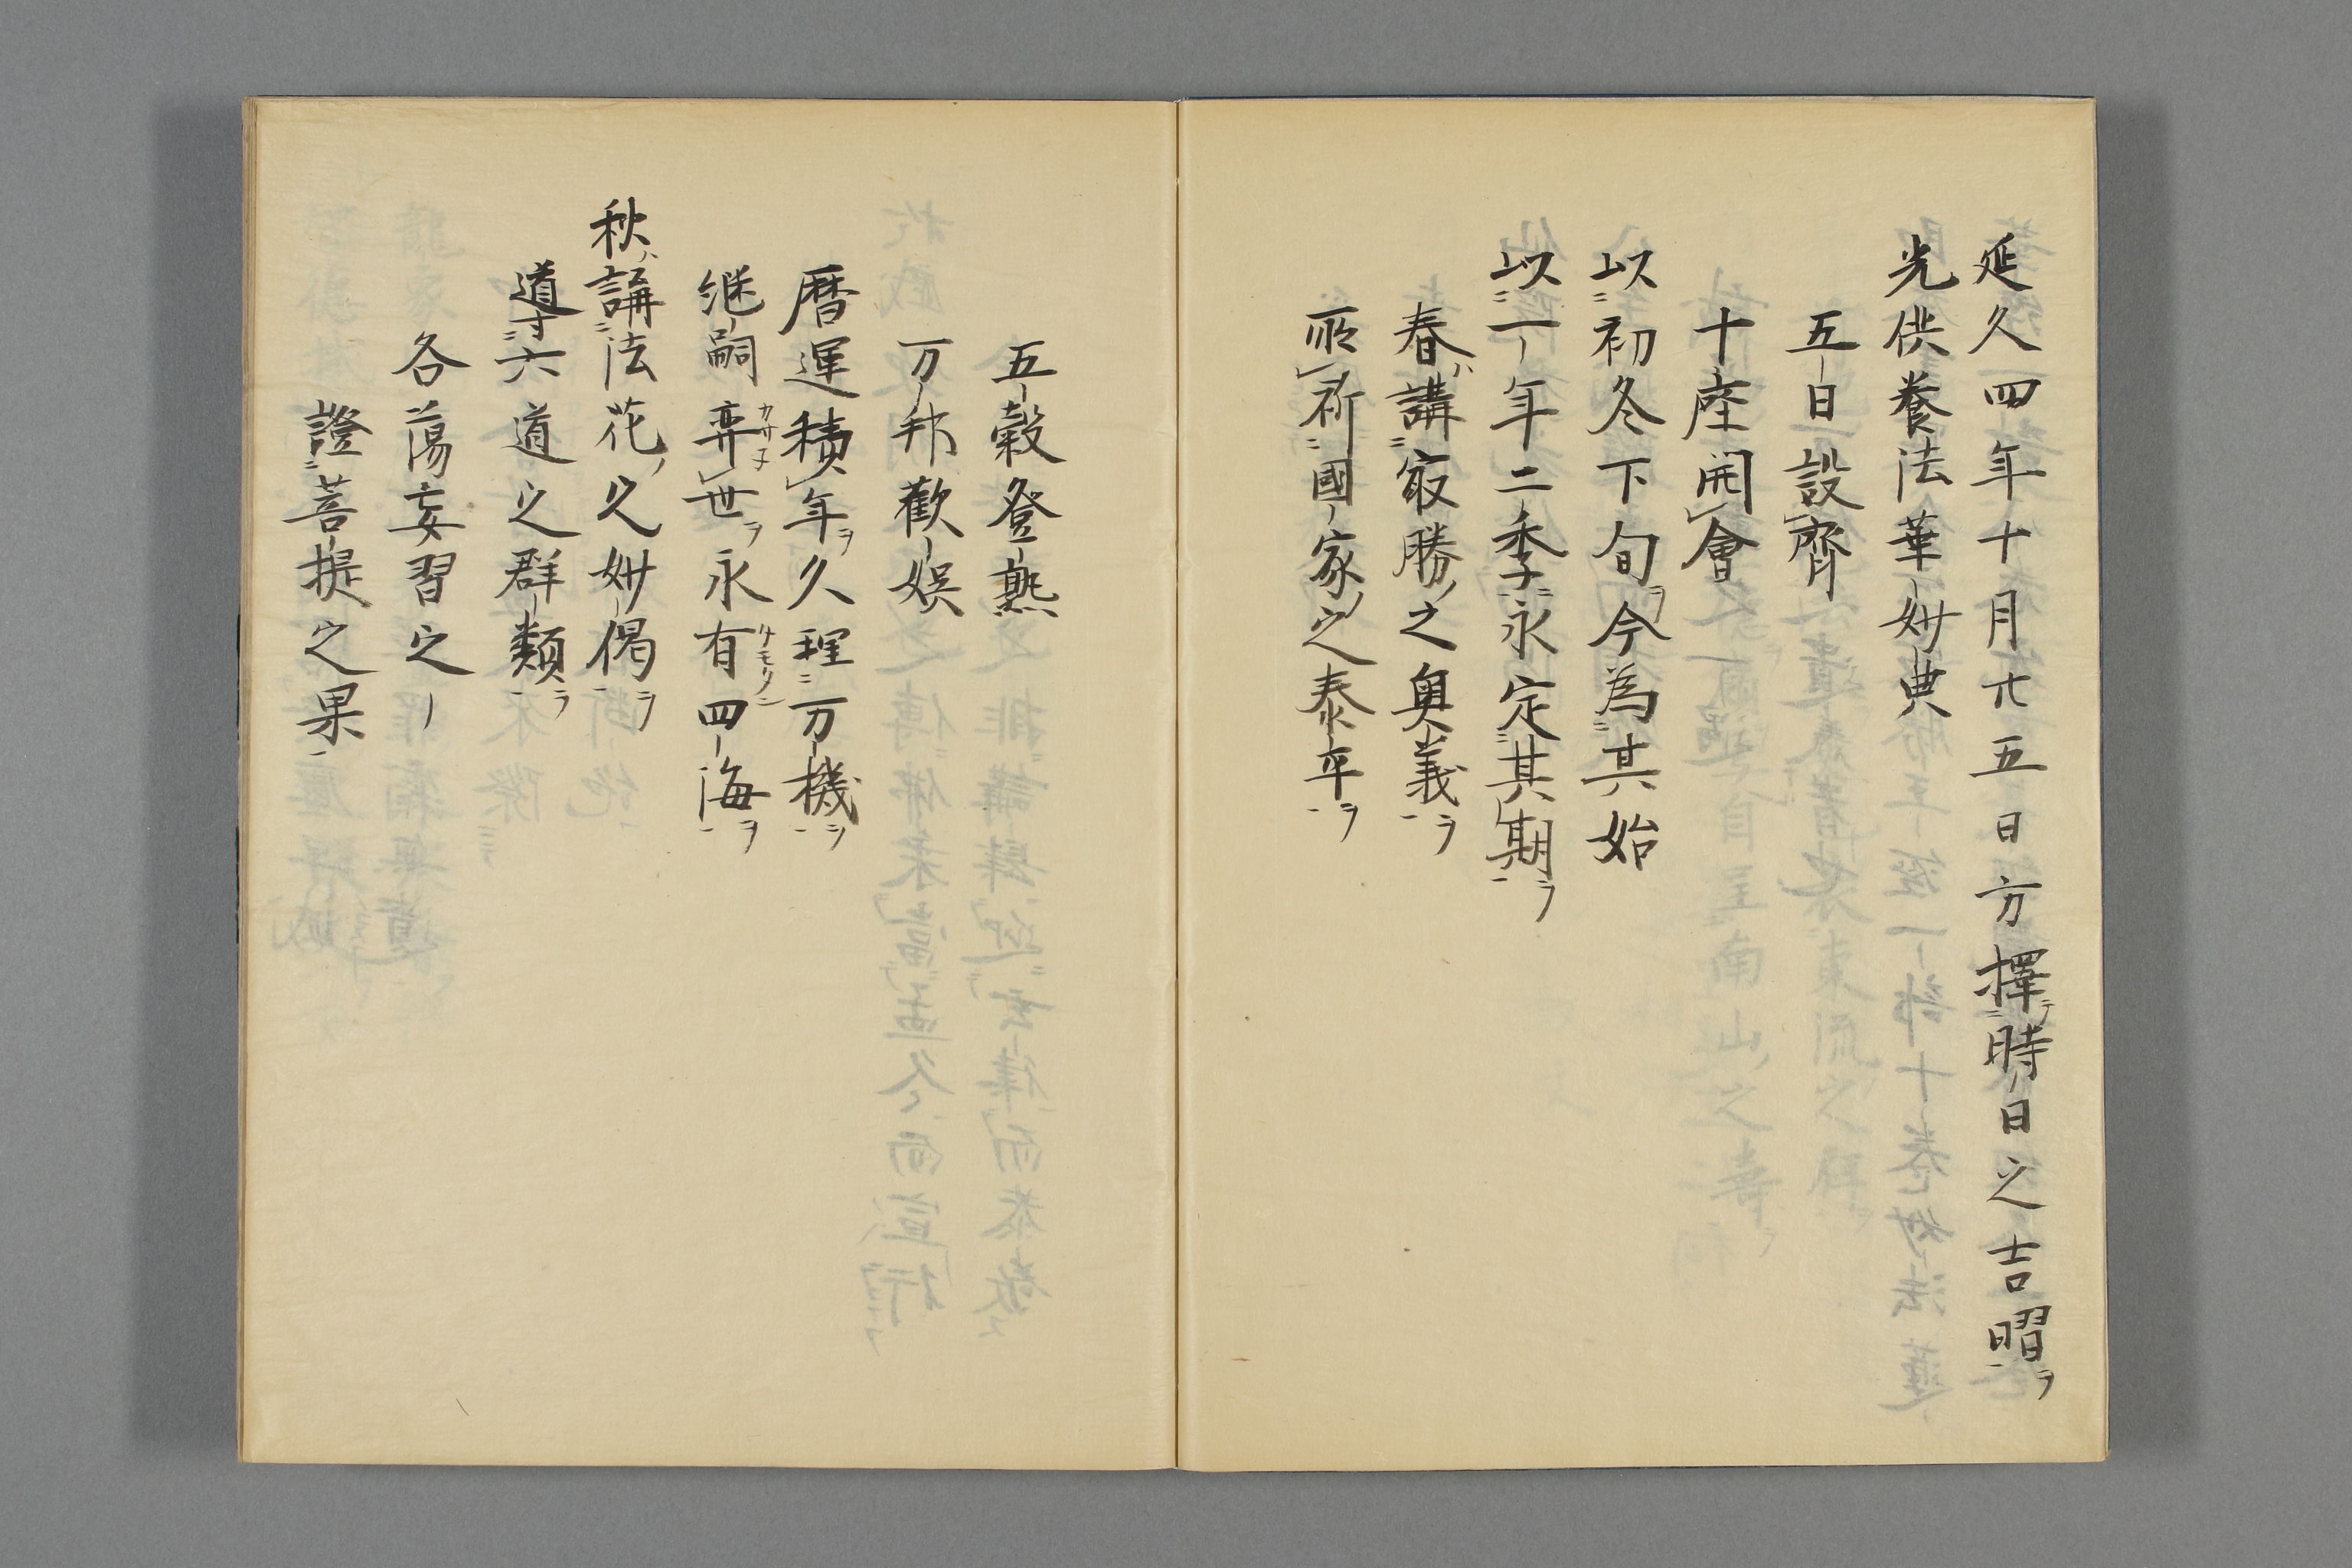 延久四年十月廿五日方擇時日之吉曜ヲ
光供養法華妙典
五日設齊
十座開會
以初冬下旬今為其始
以一年二季永定其期ヲ
春ハ講㝡勝ノ之奥義ヲ
所祈國家ノ之泰平ヲ
五穀登熟
万邦歡娯
暦運積年ヲ久理万機ヲ
継嗣弈カサネ世ヲ永有四海ヲ
秋ハ講法花ノ之妙偈ヲ
導六道之群類ヲ
各蕩妄習之
證菩提之果